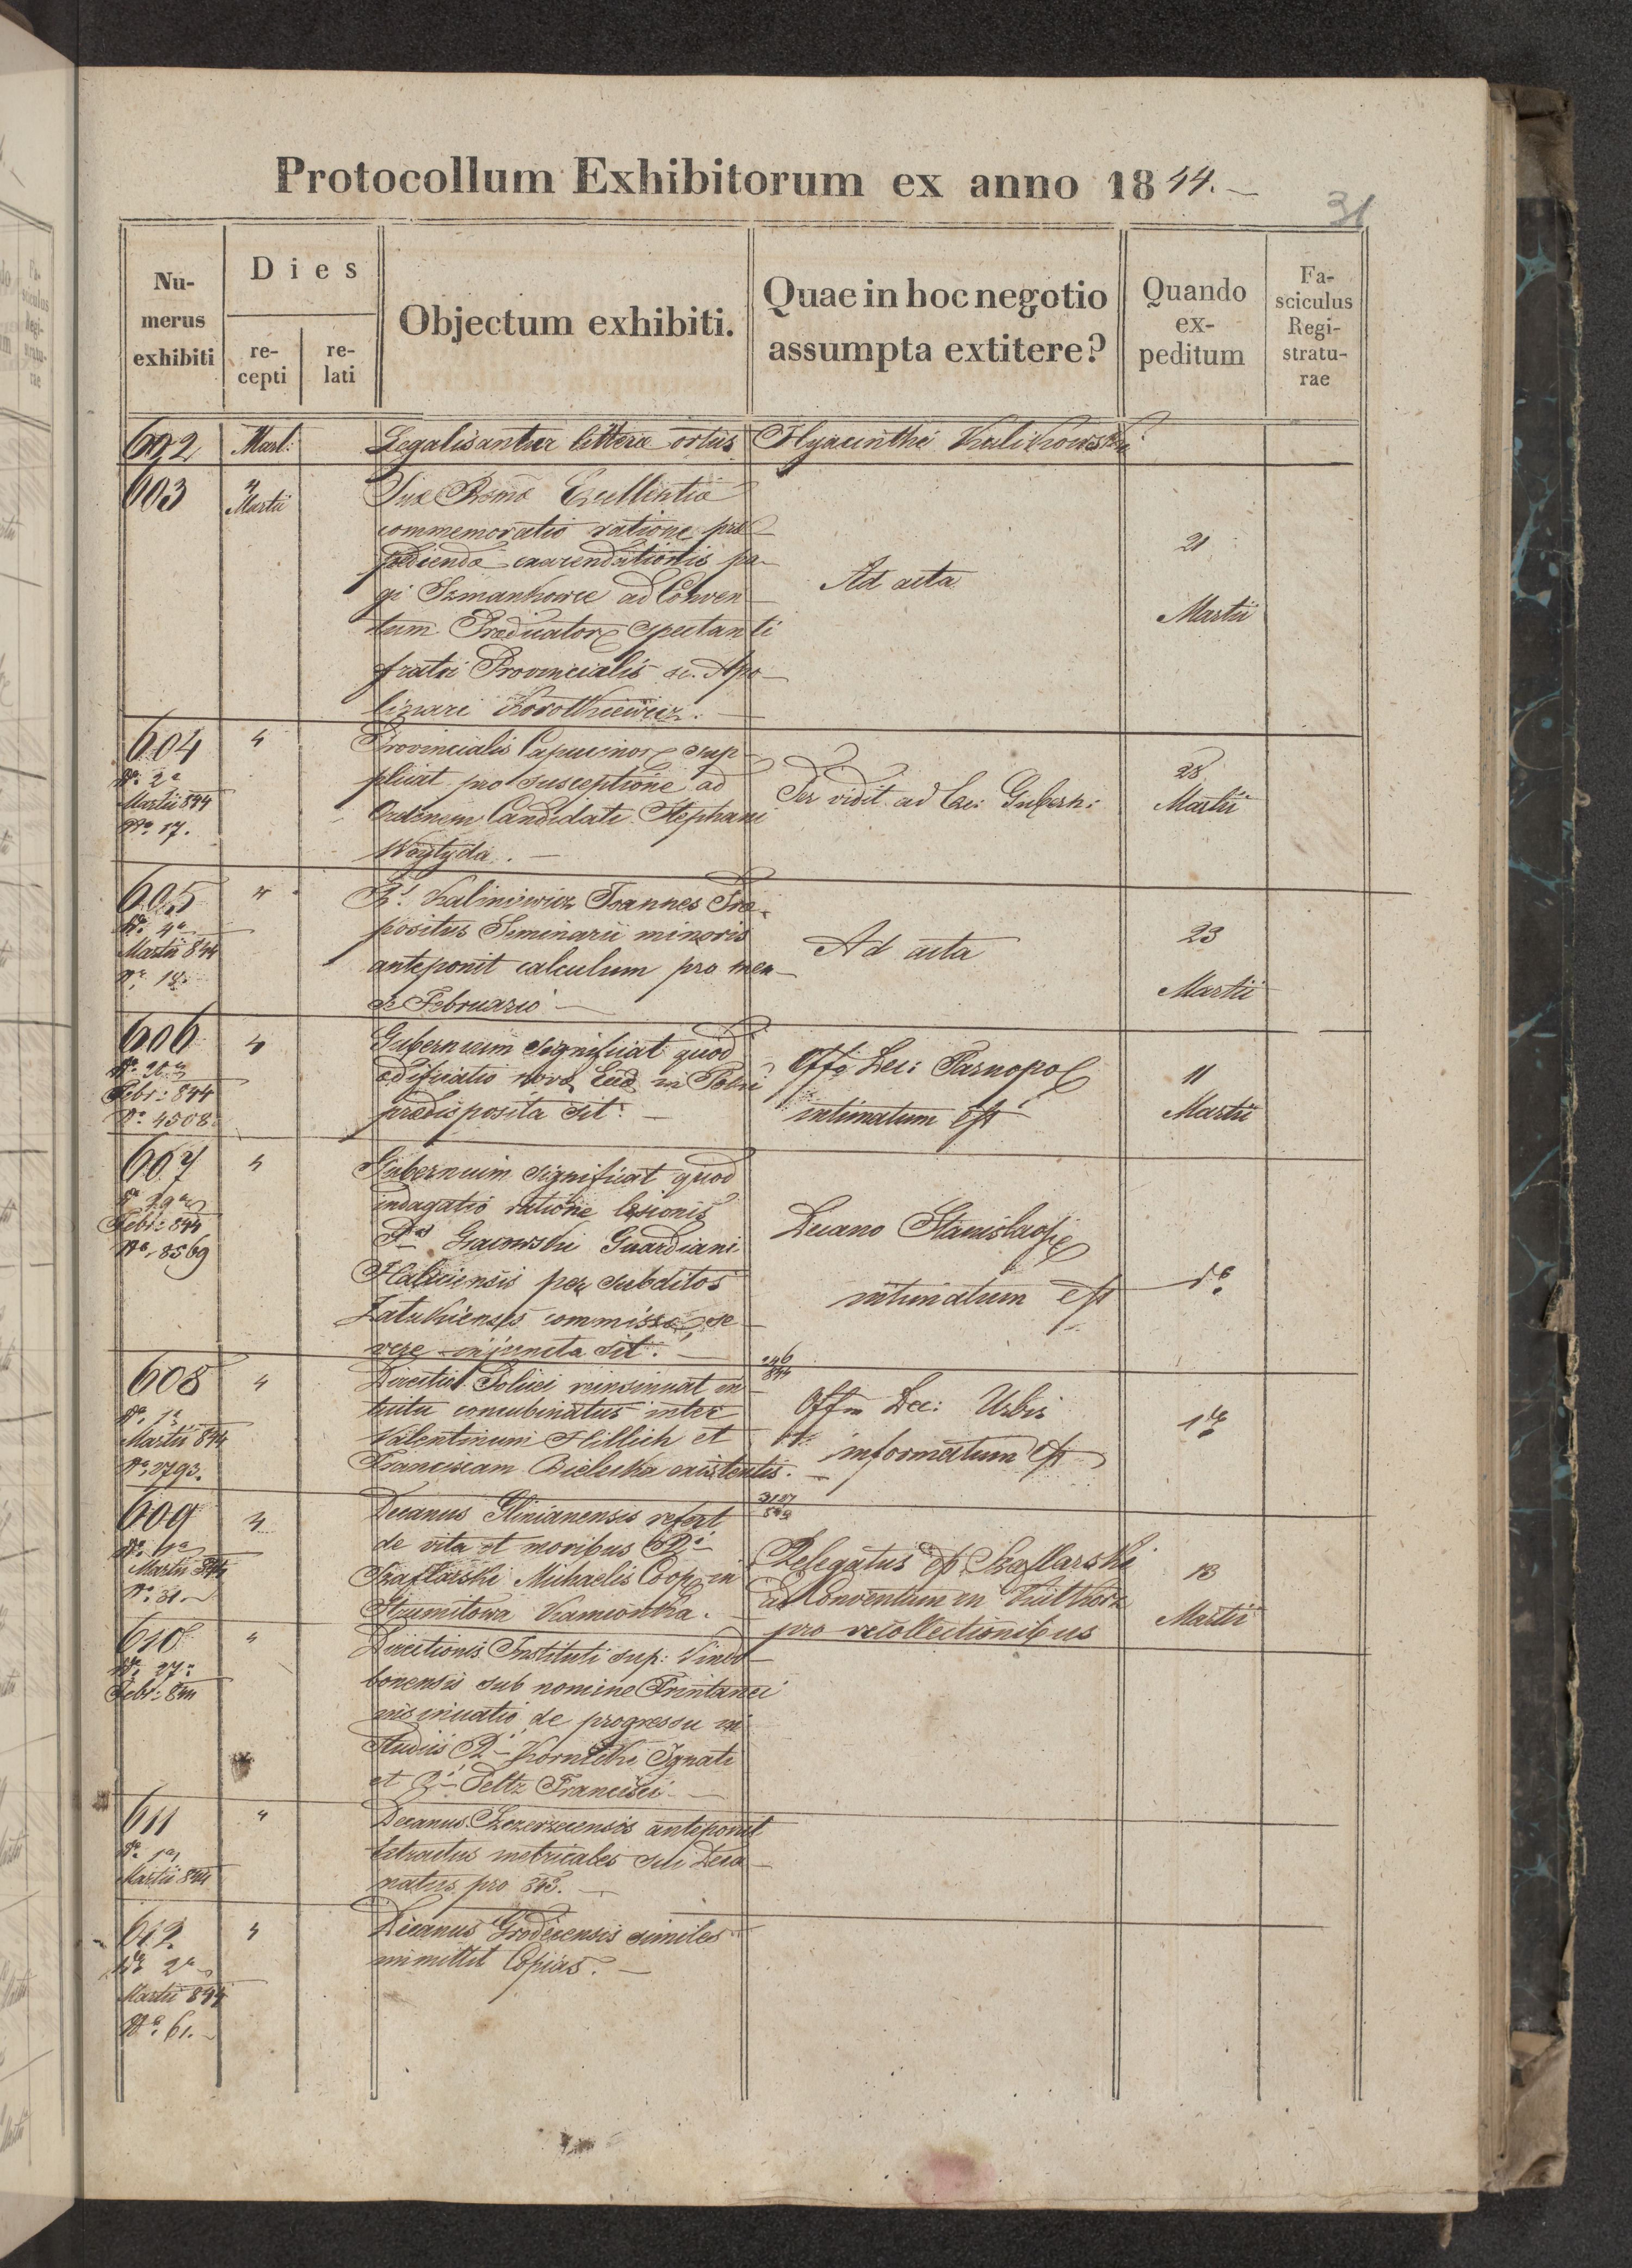 Protocollum Exhibitorum ex anno 1844.
31
Nu-
merus
exhibiti
Dies
re-
cepti
re-
lati
Objectum exhibiti.
Quae in hoc negotio
assumpta extitere?
Quando
ex-
peditum
Fa-
sciculus
Regi-
stratu-
rae
602 Mart: Legalisantur litterae ortus Hyacinthi Kalikowski
603
4
Martii
Suae Excellentiae
commemoratio ratione prae-
exarenditionis pa-
gi Szmankowce ad Conven-
tum Praedicator spectanti
fratri Provincialis Apo-
linari Korotkiewicz.
Ad acta
21
Martii
604
de 2a
Martii 844
No. 17.
4
Provincialis Capucinor sup-
plicat pro susceptione ad
Ordinem Candidati Stephani
Woytyda.
Per vidit ad Exc: Gubern:
28
Martii
605
de 4a
Martii 844
No. 18.
4
Kaliniewicz Joannes Prae-
positus Seminarii minoris
anteponit calculum pro men-
se Februario
Ad acta
23
Martii
606
Febr: 844
No. 4508.
4
Gubernium significat quod
aedificatio novae in
praedisposita sit.
Offo Dec: Tarnopol
intimatum est
11
Martii
607
de 29a
Febr: 844
No. 8569
4
Gubernium significat quod
indagatio ratione laesionis
Guardiani
Haliciensis per subditos
commissae, se-
vere injuncta sit.
Decano Stanislaop
intimatum est
do
608
de 1a
Martii 844
No. 2793.
4
Directio Policei reinsinuat in-
tuitu concubinatus inter
Valentinum Hillich et
Franciscam Bielecka existentis.
846
844
Offo Dec: Urbis
informatum est
609
Martii 844
No. 31.
4
Decanus Glinianensis refert
de vita et moribus Ri
Szaflarski Michaelis Coop. in
Strumilowa Kamionka.
3107
Relegatus est Szaflarski
ad Conventum in
pro recollectionibus
13
Martii
610
de 27a
Febr: 844
4
Directionis Instituti sup: Vindo-
bonensis sub nomine Frintanei
insinuatio de progressu in
studiis Ri Ignati
et Ri Peltz Francisci
611
de 1a
Martii 844
4
Decanus Szczerzecensis anteponit
Extractus metricales sui Deca-
natus pro 843.
612
de 2a
Martii 844
No. 61.
4
Decanus Grodecensis similes
immittit Copias.